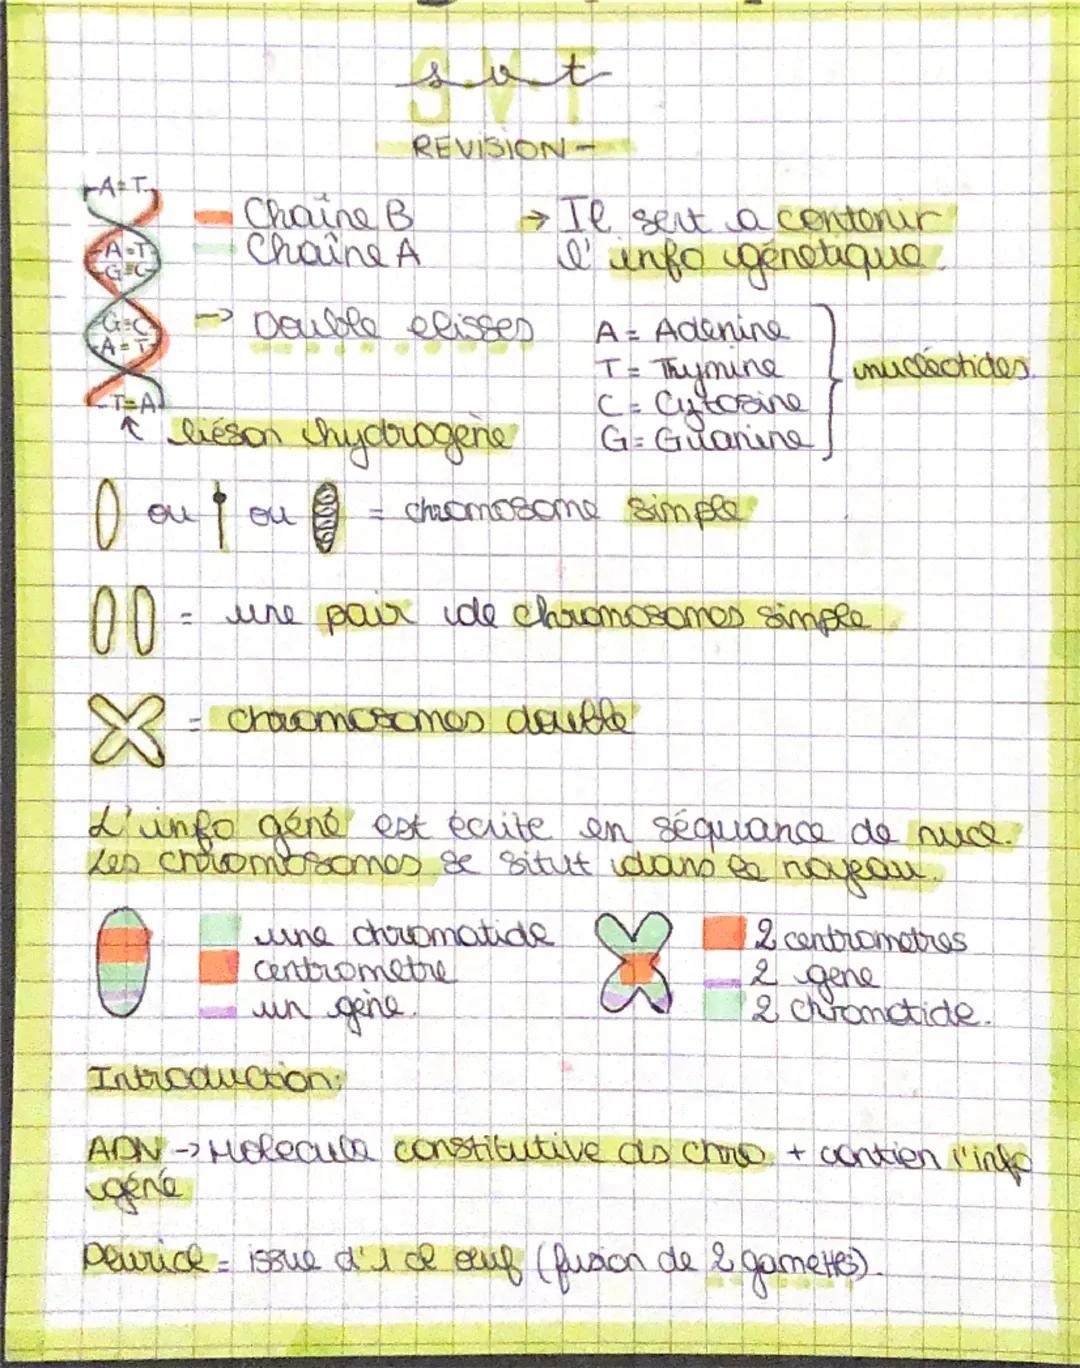 svt
SVT
REVISION -
A=T
Chaîne B
→ Il sert a contenir
A=T
Chaîne A
l'info génétique.
G≡C
G≡C
→ Double elisses
A = Adénine
A=T
T = Thymine
nucléotides.
T=A
C = Cytosine
↑ liéson hydrogène
G = Guanine
ou ou = chromosome simple
= une pair de chromosomes simple
= chromosomes double
L'info géné est écrite en séquance de nucé.
Les chromosomes se situt dans le noyeau.
une chromatide
2 centrometres
centrometre
2 gene
un gène.
2 chromatide.
Introduction:
ADN → Molecule constitutive ds chro + contien l'info
géné
Pluricel = issue d'1 cel œuf (fusion de 2 gamettes).